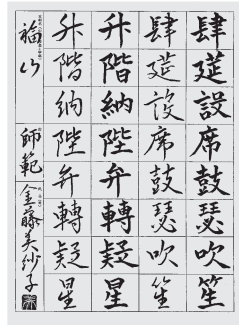 肆筵設席鼓瑟吹笙
肆筵設席鼓瑟吹笙
升階納陛弁轉疑星
升階納陛弁轉疑星
福山 師範 金藤美紗子